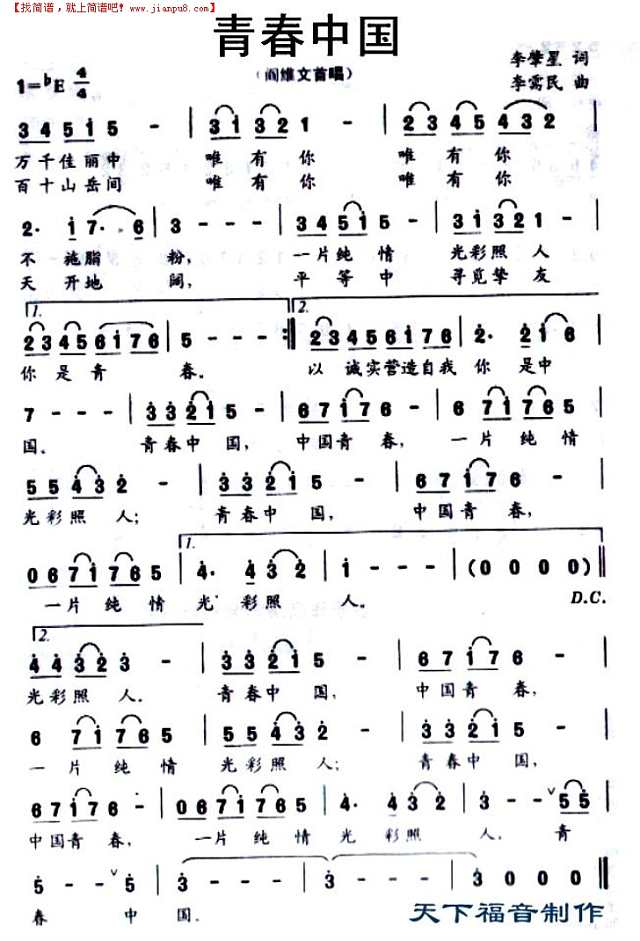 【找简谱，就上简谱吧！www.jianpu8.com】
青春中国
(阎维文首唱)
1=♭E 4/4
李擎星 词
李需民 曲
3 4 5 1 5 - | 3 1 3 2 1 - | 2 3 4 5 4 3 2 |
万千佳丽中 唯有你 唯有你
百十山岳间 唯有你 唯有你
2· 1 7· 6 | 3 - - - | 3 4 5 1 5 - | 3 1 3 2 1 - |
不施脂粉， 一片纯情 光彩照人
天开地阔， 平等中 寻觅挚友
1. 2.
2 3 4 5 6 1 7 6 | 5 - - - :‖ 2 3 4 5 6 1 7 6 | 2· 2 1 6 |
你是青春。 以诚实营造自我你是中
7 - - - | 3 3 2 1 5 - | 6 7 1 7 6 - | 6 7 1 7 6 5 |
国。 青春中国， 中国青春， 一片纯情
5 5 4 3 2 - | 3 3 2 1 5 - | 6 7 1 7 6 - |
光彩照人； 青春中国， 中国青春，
1.
0 6 7 1 7 6 5 | 4· 4 3 2 | 1 - - - | (0 0 0 0) ‖
一片纯情光彩照人。 D.C.
2.
4 4 3 2 3 - | 3 3 2 1 5 - | 6 7 1 7 6 - |
光彩照人。 青春中国， 中国青春，
6 7 1 7 6 5 | 5 5 4 3 2 - | 3 3 2 1 5 - |
一片纯情 光彩照人； 青春中国，
6 7 1 7 6 - | 0 6 7 1 7 6 5 | 4· 4 3 2 | 3 - - ∨ 5 5 |
中国青春， 一片纯情光彩照人。青
5 - - ∨ 5 | 3 - - - | 3 - - - | 3 0 0 0 ‖
春中国。
天下福音制作